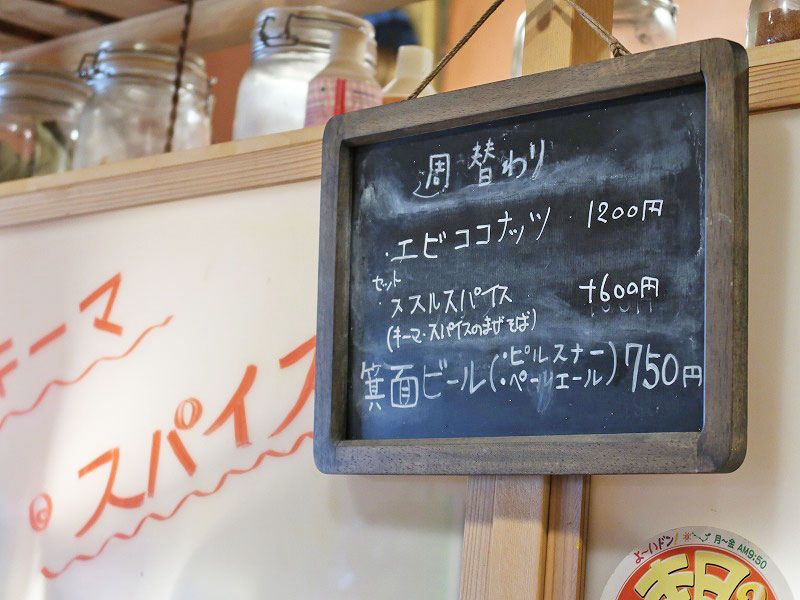 週替わり
・エビココナッツ 1200円
セット
・ススルスパイス +600円
(キーマ・スパイスのまぜそば)
箕面ビール(・ピルスナー ・ペールエール) 750円
キーマ
スパイス
よ〜いドン! 月〜金 AM9:50